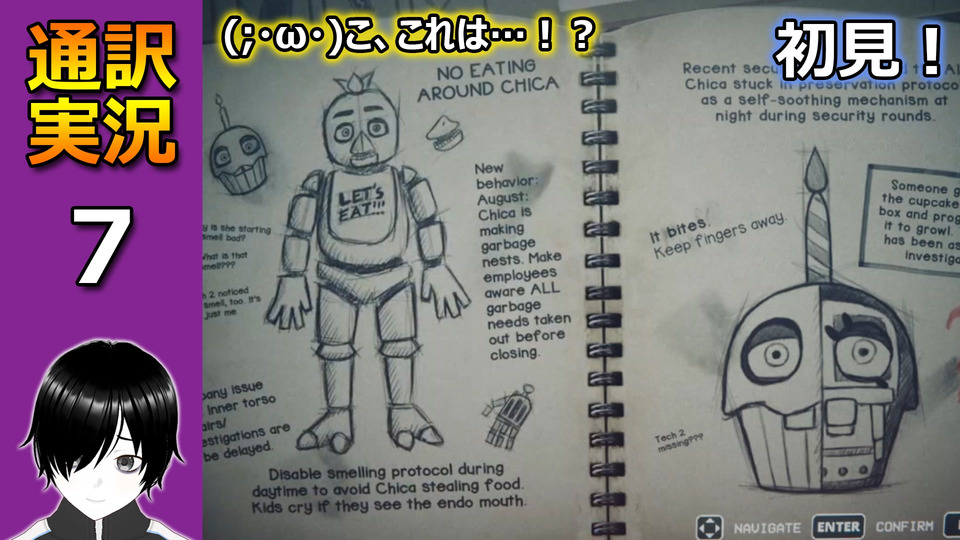 通訳
実況
7
(;・ω・)こ、これは…！？
初見！
NO EATING
AROUND CHICA
LET'S
EAT!!!
is she starting
smell bad?
What is that
smell???
2 noticed
smell, too. It's
just me
New
behavior:
August:
Chica is
making
garbage
nests. Make
employees
aware ALL
garbage
needs taken
out before
closing.
issue
inner torso
be delayed.
Disable smelling protocol during
daytime to avoid Chica stealing food.
Kids cry if they see the endo mouth.
Recent
Chica stuck in preservation protocol
as a self-soothing mechanism at
night during security rounds.
It bites.
Keep fingers away.
Someone
the cupcake
box and
it to growl.
has been
Tech 2
missing???
NAVIGATE ENTER CONFIRM